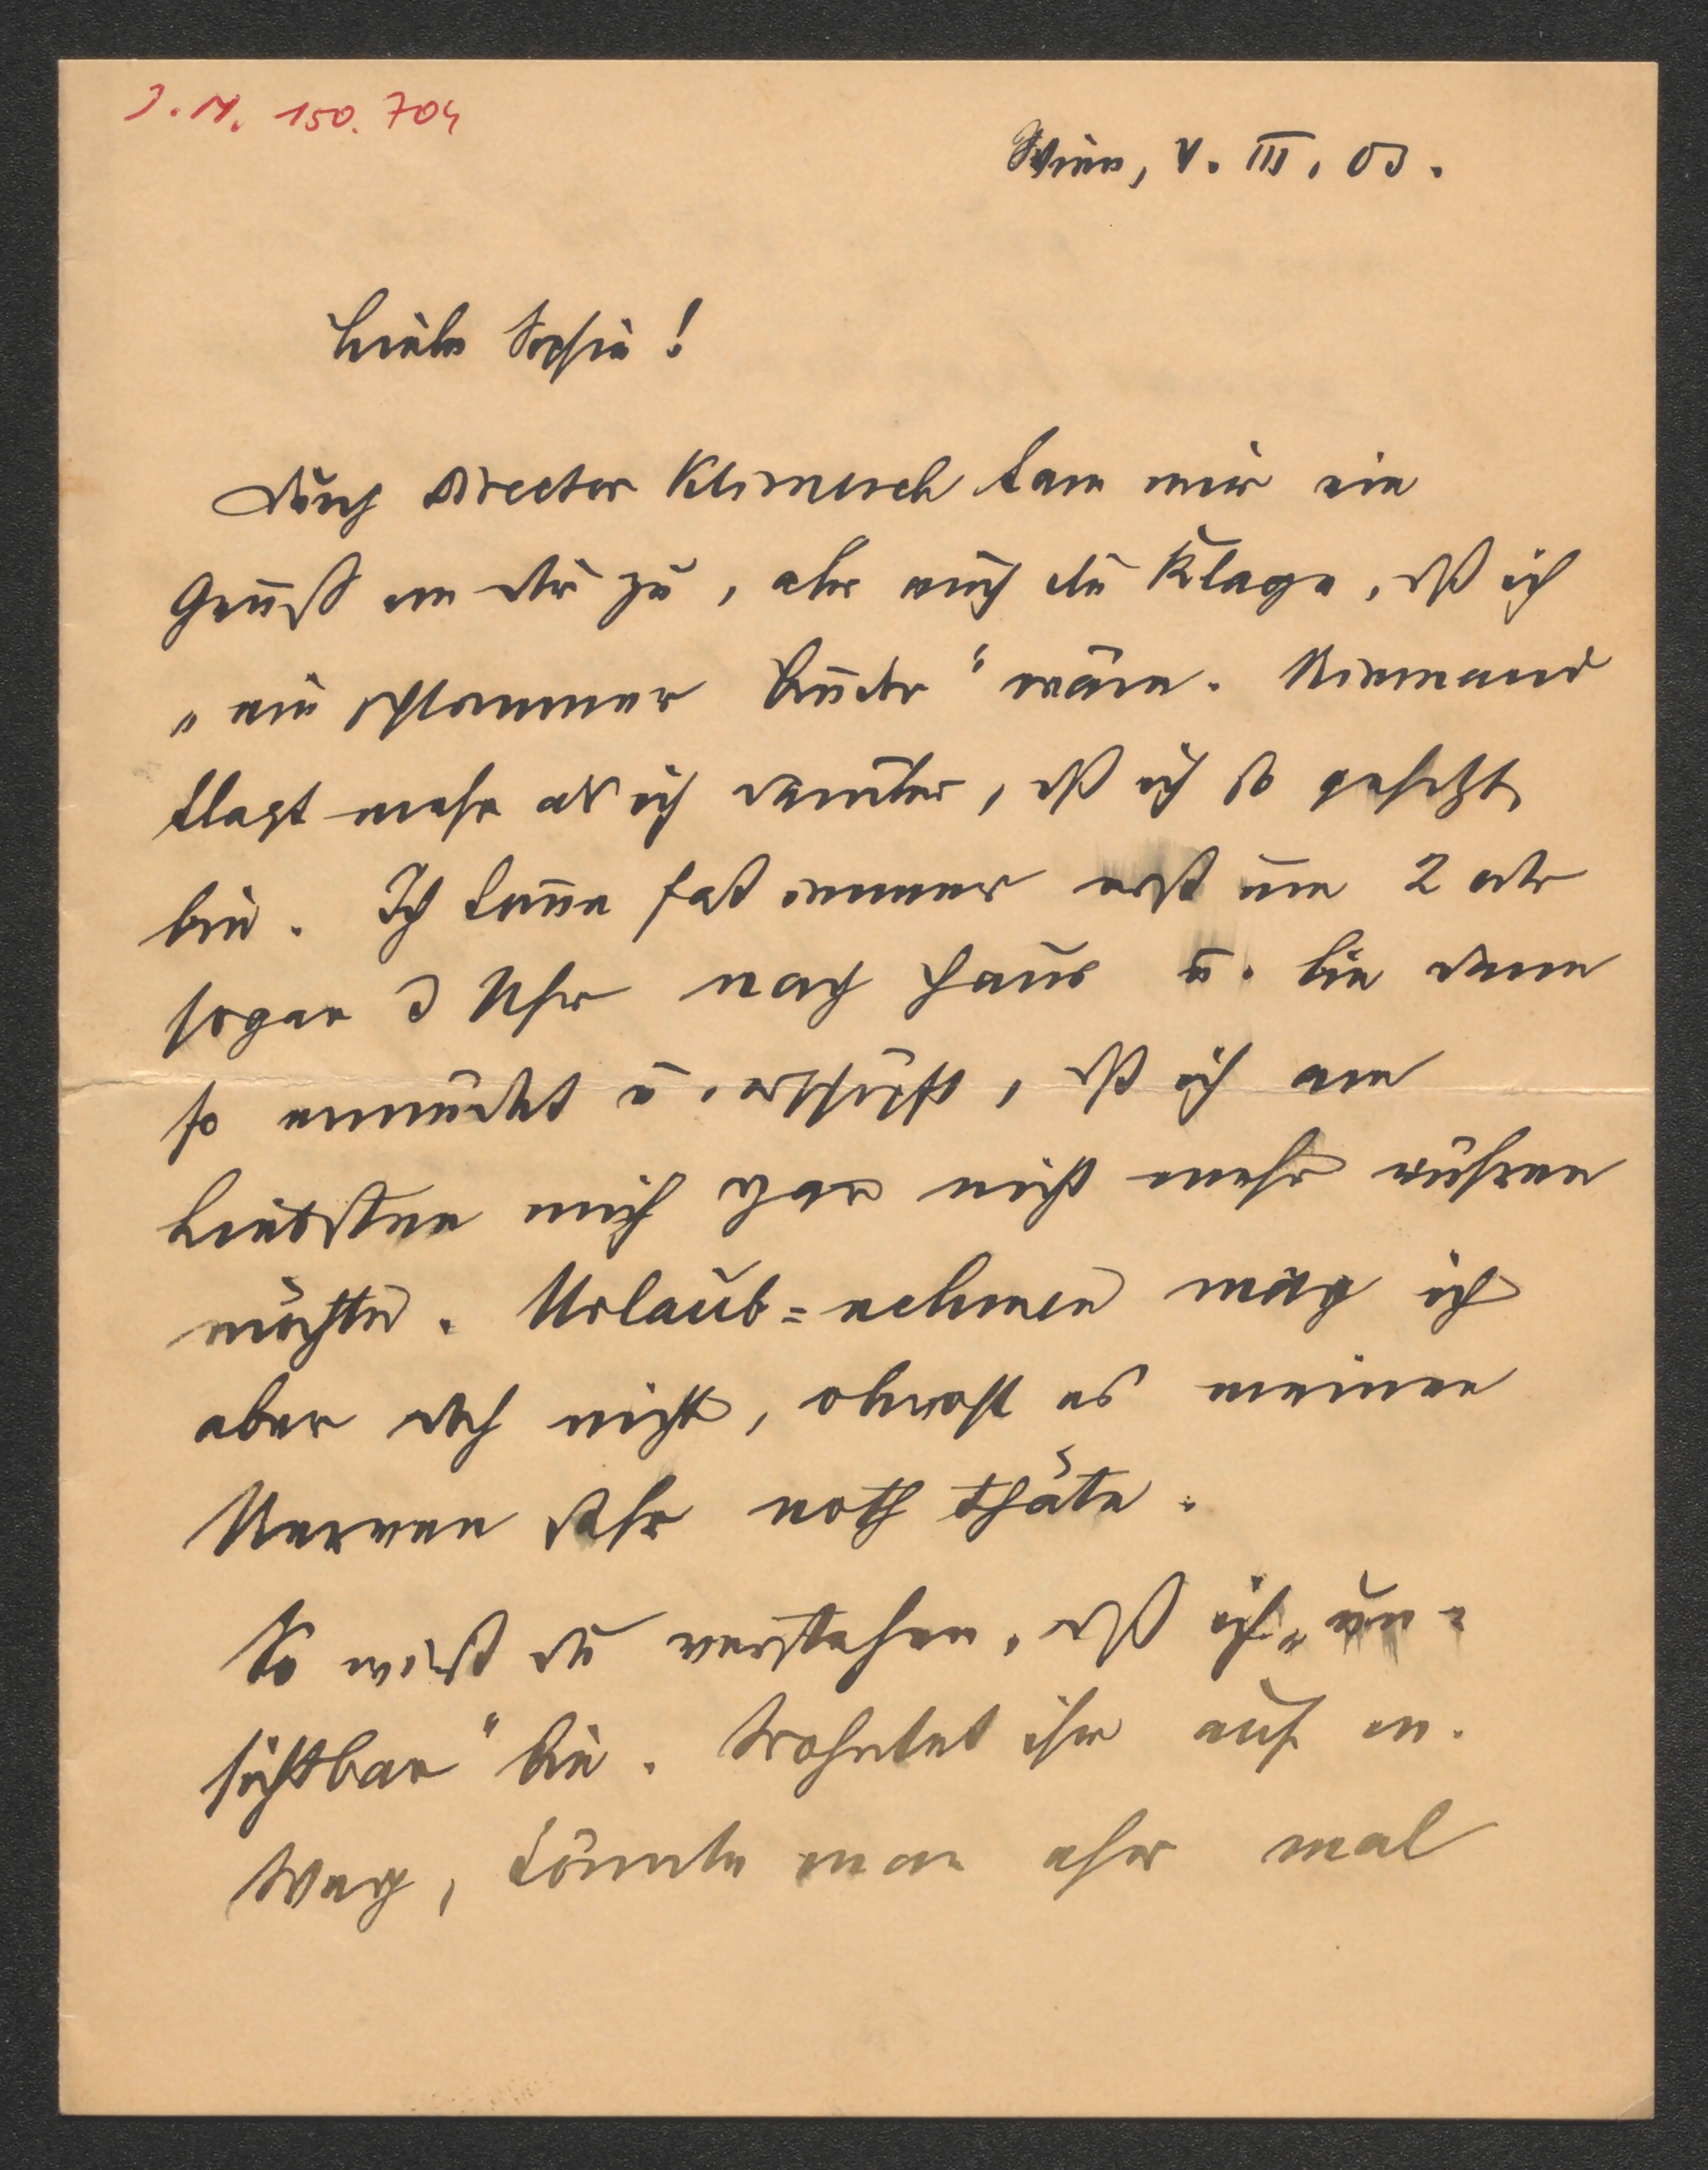 J. N. 150.704
Wien, V. III. 03.
Liebe Sophie!
Durch Director Klimesch kam mir ein
Gruß von Dir zu, aber auch die Klage, dß ich
„ein schlimmer Bruder" wäre. Niemand
klagt mehr als ich darüber, dß ich so gehetzt
bin. Ich komme fast immer erst um 2 oder
sogar 3 Uhr nach Haus u. bin dann
so ermüdet u. erschöpft, dß ich am
Liebsten mich gar nicht mehr rühren
möchte. Urlaub=nehmen mag ich
aber doch nicht, obwohl es meinen
Nerven sehr noth thäte.
So wirst du verstehen, dß ich „un-
sichtbar" bin. Wohntet ihr auf m.
Weg, könnte man eher mal